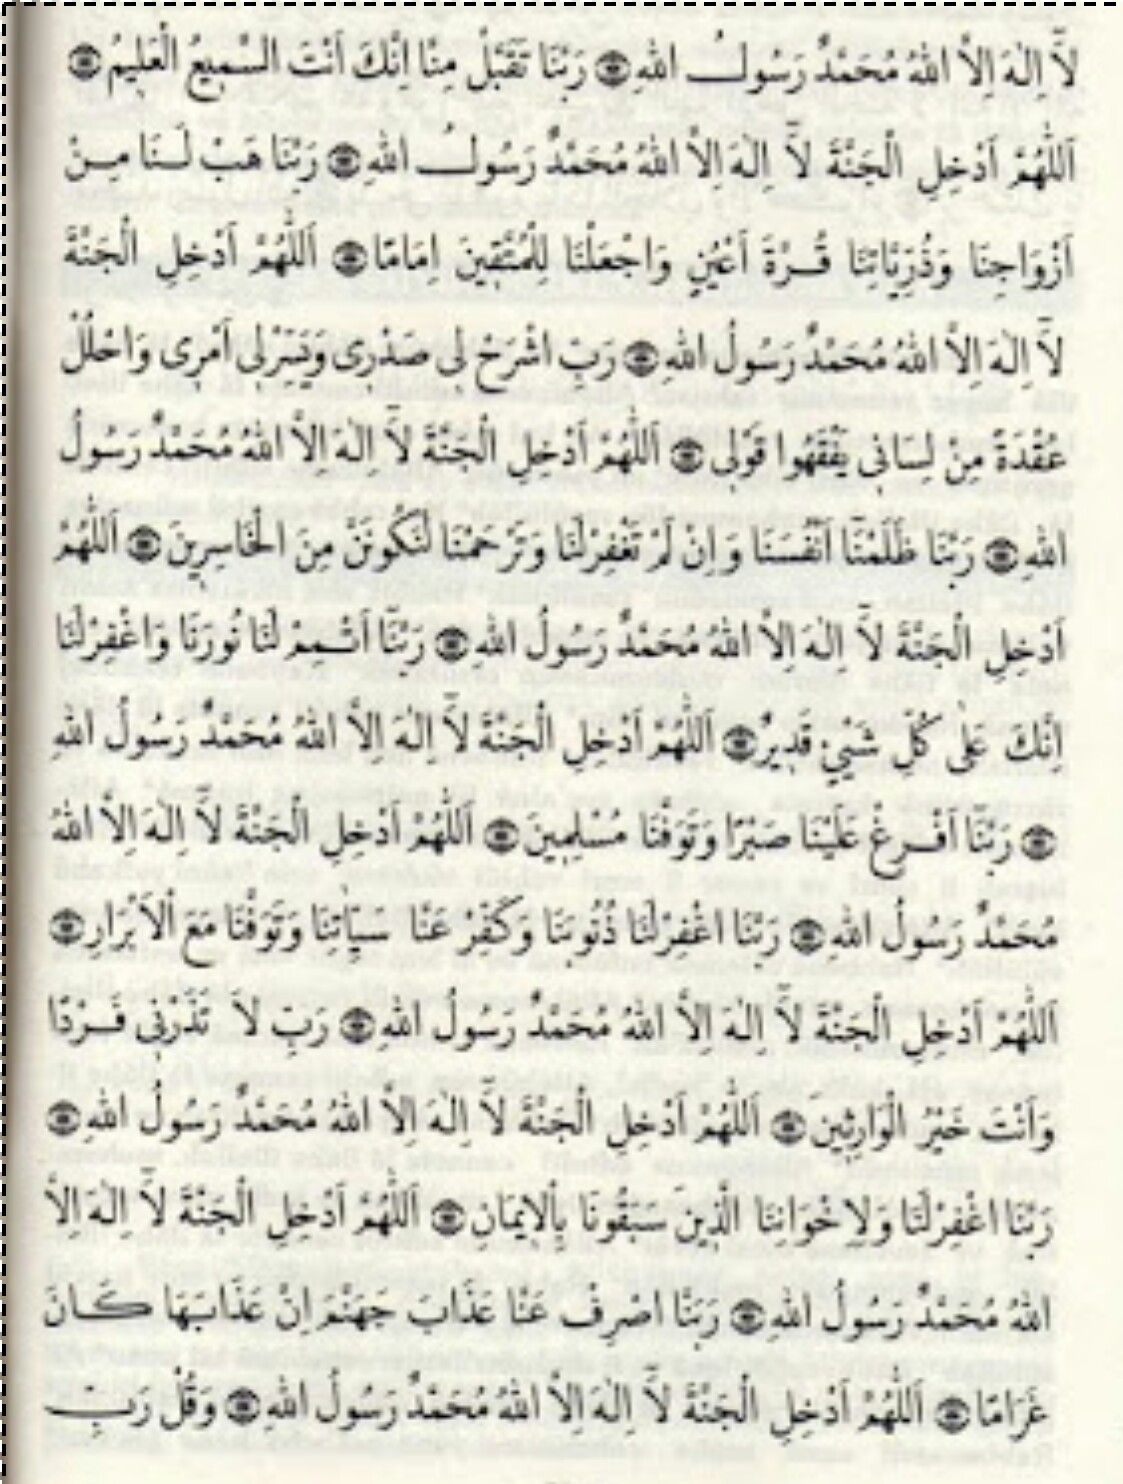 لَآ اِلٰهَ اِلاَّ اللهُ مُحَمَّدٌ رَسُولُ اللهِ ۞ رَبَّنَا تَقَبَّلْ مِنَّا اِنَّكَ اَنْتَ السَّمِيعُ الْعَلِيمُ ۞
اَللّٰهُمَّ اَدْخِلِ الْجَنَّةَ لَآ اِلٰهَ اِلاَّ اللهُ مُحَمَّدٌ رَسُولُ اللهِ ۞ رَبَّنَا هَبْ لَنَا مِنْ
اَزْوَاجِنَا وَذُرِّيَّاتِنَا قُرَّةَ اَعْيُنٍ وَاجْعَلْنَا لِلْمُتَّقِينَ اِمَامًا ۞ اَللّٰهُمَّ اَدْخِلِ الْجَنَّةَ
لَآ اِلٰهَ اِلاَّ اللهُ مُحَمَّدٌ رَسُولُ اللهِ ۞ رَبِّ اشْرَحْ لِى صَدْرِى وَيَسِّرْلِى اَمْرِى وَاحْلُلْ
عُقْدَةً مِنْ لِسَانِى يَفْقَهُوا قَوْلِى ۞ اَللّٰهُمَّ اَدْخِلِ الْجَنَّةَ لَآ اِلٰهَ اِلاَّ اللهُ مُحَمَّدٌ رَسُولُ
اللهِ ۞ رَبَّنَا ظَلَمْنَآ اَنْفُسَنَا وَاِنْ لَمْ تَغْفِرْلَنَا وَتَرْحَمْنَا لَنَكُونَنَّ مِنَ الْخَاسِرِينَ ۞ اَللّٰهُمَّ
اَدْخِلِ الْجَنَّةَ لَآ اِلٰهَ اِلاَّ اللهُ مُحَمَّدٌ رَسُولُ اللهِ ۞ رَبَّنَآ اَتْمِمْ لَنَا نُورَنَا وَاغْفِرْلَنَا
اِنَّكَ عَلٰى كُلِّ شَيْئٍ قَدِيرٌ ۞ اَللّٰهُمَّ اَدْخِلِ الْجَنَّةَ لَآ اِلٰهَ اِلاَّ اللهُ مُحَمَّدٌ رَسُولُ اللهِ
۞ رَبَّنَآ اَفْرِغْ عَلَيْنَا صَبْرًا وَتَوَفَّنَا مُسْلِمِينَ ۞ اَللّٰهُمَّ اَدْخِلِ الْجَنَّةَ لَآ اِلٰهَ اِلاَّ اللهُ
مُحَمَّدٌ رَسُولُ اللهِ ۞ رَبَّنَا اغْفِرْلَنَا ذُنُوبَنَا وَكَفِّرْ عَنَّا سَيِّاٰتِنَا وَتَوَفَّنَا مَعَ اْلاَبْرَارِ ۞
اَللّٰهُمَّ اَدْخِلِ الْجَنَّةَ لَآ اِلٰهَ اِلاَّ اللهُ مُحَمَّدٌ رَسُولُ اللهِ ۞ رَبِّ لاَ تَذَرْنِى فَرْدًا
وَاَنْتَ خَيْرُ الْوَارِثِينَ ۞ اَللّٰهُمَّ اَدْخِلِ الْجَنَّةَ لَآ اِلٰهَ اِلاَّ اللهُ مُحَمَّدٌ رَسُولُ اللهِ ۞
رَبَّنَا اغْفِرْلَنَا وَلِاِخْوَانِنَا الَّذِينَ سَبَقُونَا بِاْلاِيمَانِ ۞ اَللّٰهُمَّ اَدْخِلِ الْجَنَّةَ لَآ اِلٰهَ اِلاَّ
اللهُ مُحَمَّدٌ رَسُولُ اللهِ ۞ رَبَّنَا اصْرِفْ عَنَّا عَذَابَ جَهَنَّمَ اِنَّ عَذَابَهَا كَانَ
غَرَامًا ۞ اَللّٰهُمَّ اَدْخِلِ الْجَنَّةَ لَآ اِلٰهَ اِلاَّ اللهُ مُحَمَّدٌ رَسُولُ اللهِ ۞ وَقُلْ رَبِّ